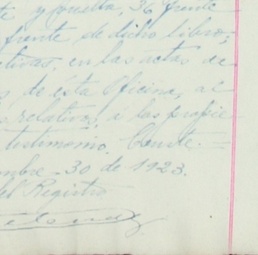 te y vuelta, 36 frente
frente de dicho libro;
tivas, en las actas de
s de esta Oficina, al
s relativo, a las propie
testimonio. Conste.
mbre - 30 de 1923.
del Registro